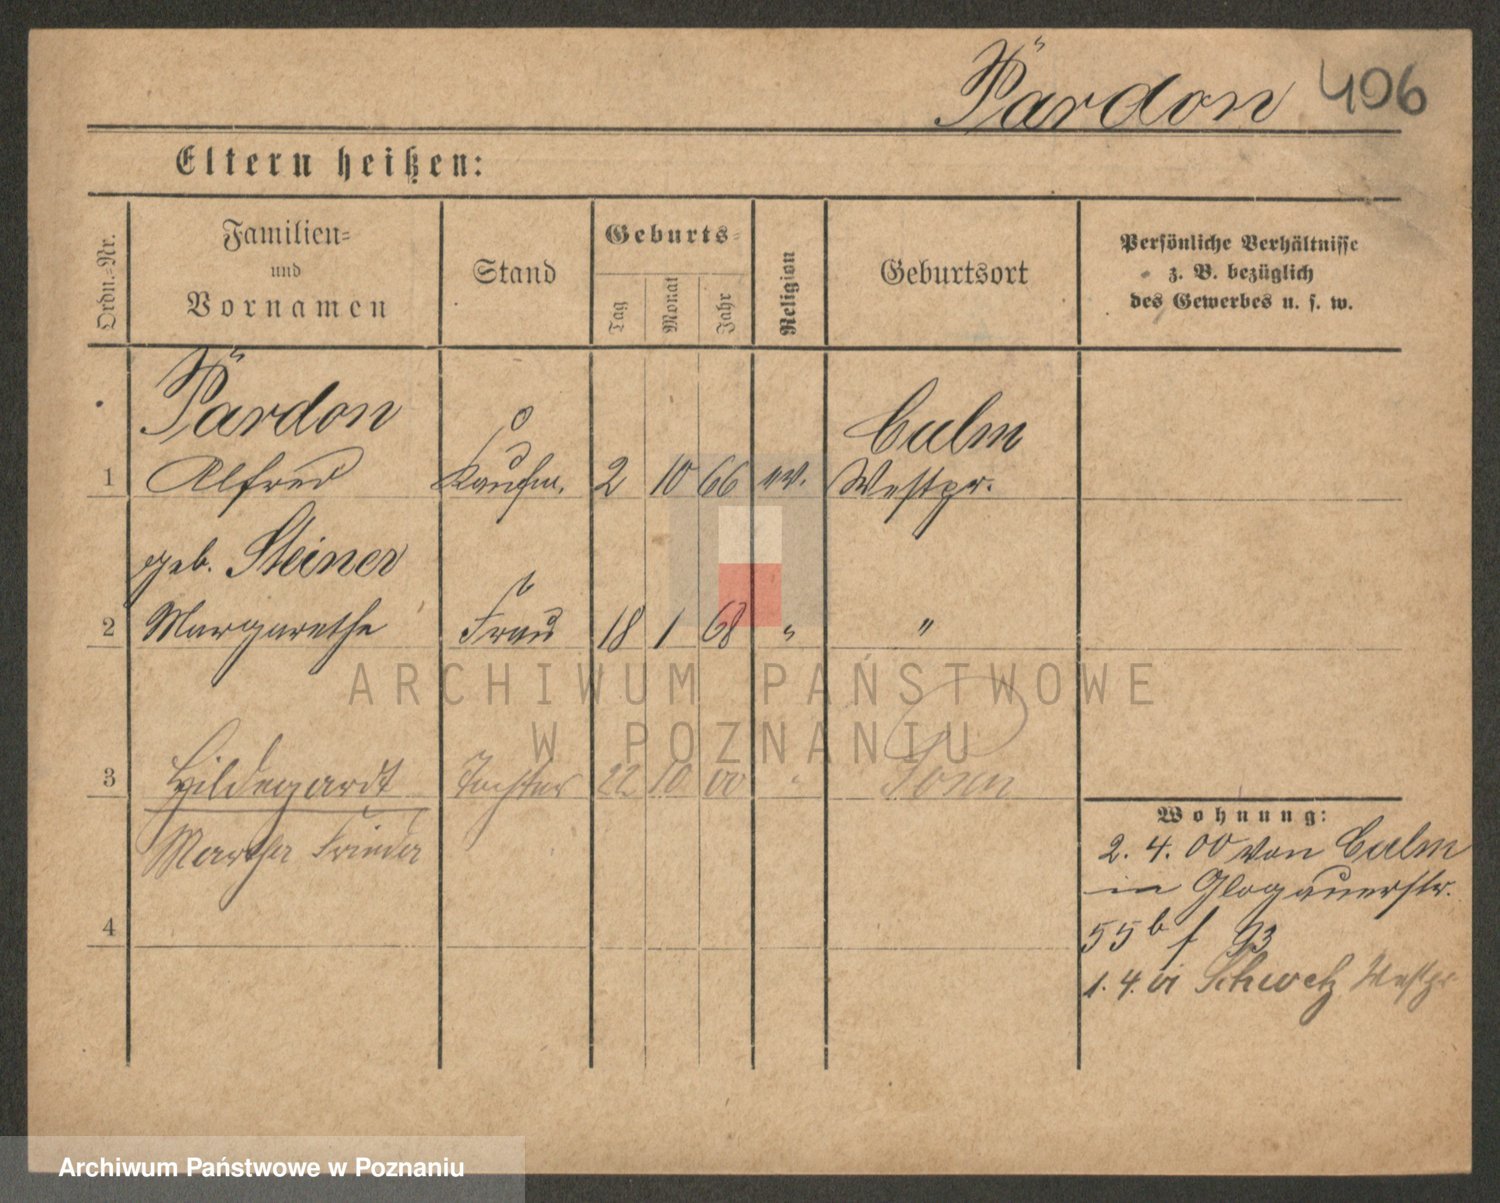 Pärdon 406
Eltern heißen:
Ordn.-Nr.
Familien-
und
Vornamen
Stand
Geburts-
Tag
Monat
Jahr
Religion
Geburtsort
Persönliche Verhältnisse
z. B. bezüglich
des Gewerbes u. s. w.
Pärdon Culm
1 Alfred Kaufm. 2 10 66 ev. Westpr.
geb. Steiner
2 Margarethe Frau 18 1 68 " "
3 Hildegardt Tochter 22 10 00 "
Martha Frieda
4
Wohnung:
2. 4. 00 von Culm
in Glogauerstr.
55b
1. 4. 01 Schwetz Westpr
ARCHIWUM PAŃSTWOWE
W POZNANIU
Archiwum Państwowe w Poznaniu